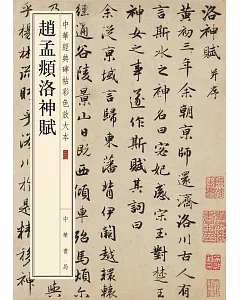 洛神賦 并序
黃初三年余朝京師還濟洛川古人有
言斯水之神名曰宓妃感宋玉對楚王
神女之事遂作斯賦其詞曰
余從京域言歸東藩背伊闕越轘轅
經通谷陵景山日既西傾車殆馬煩尔
中華經典碑帖彩色放大本
趙孟頫洛神賦
中華書局
乎楊林流